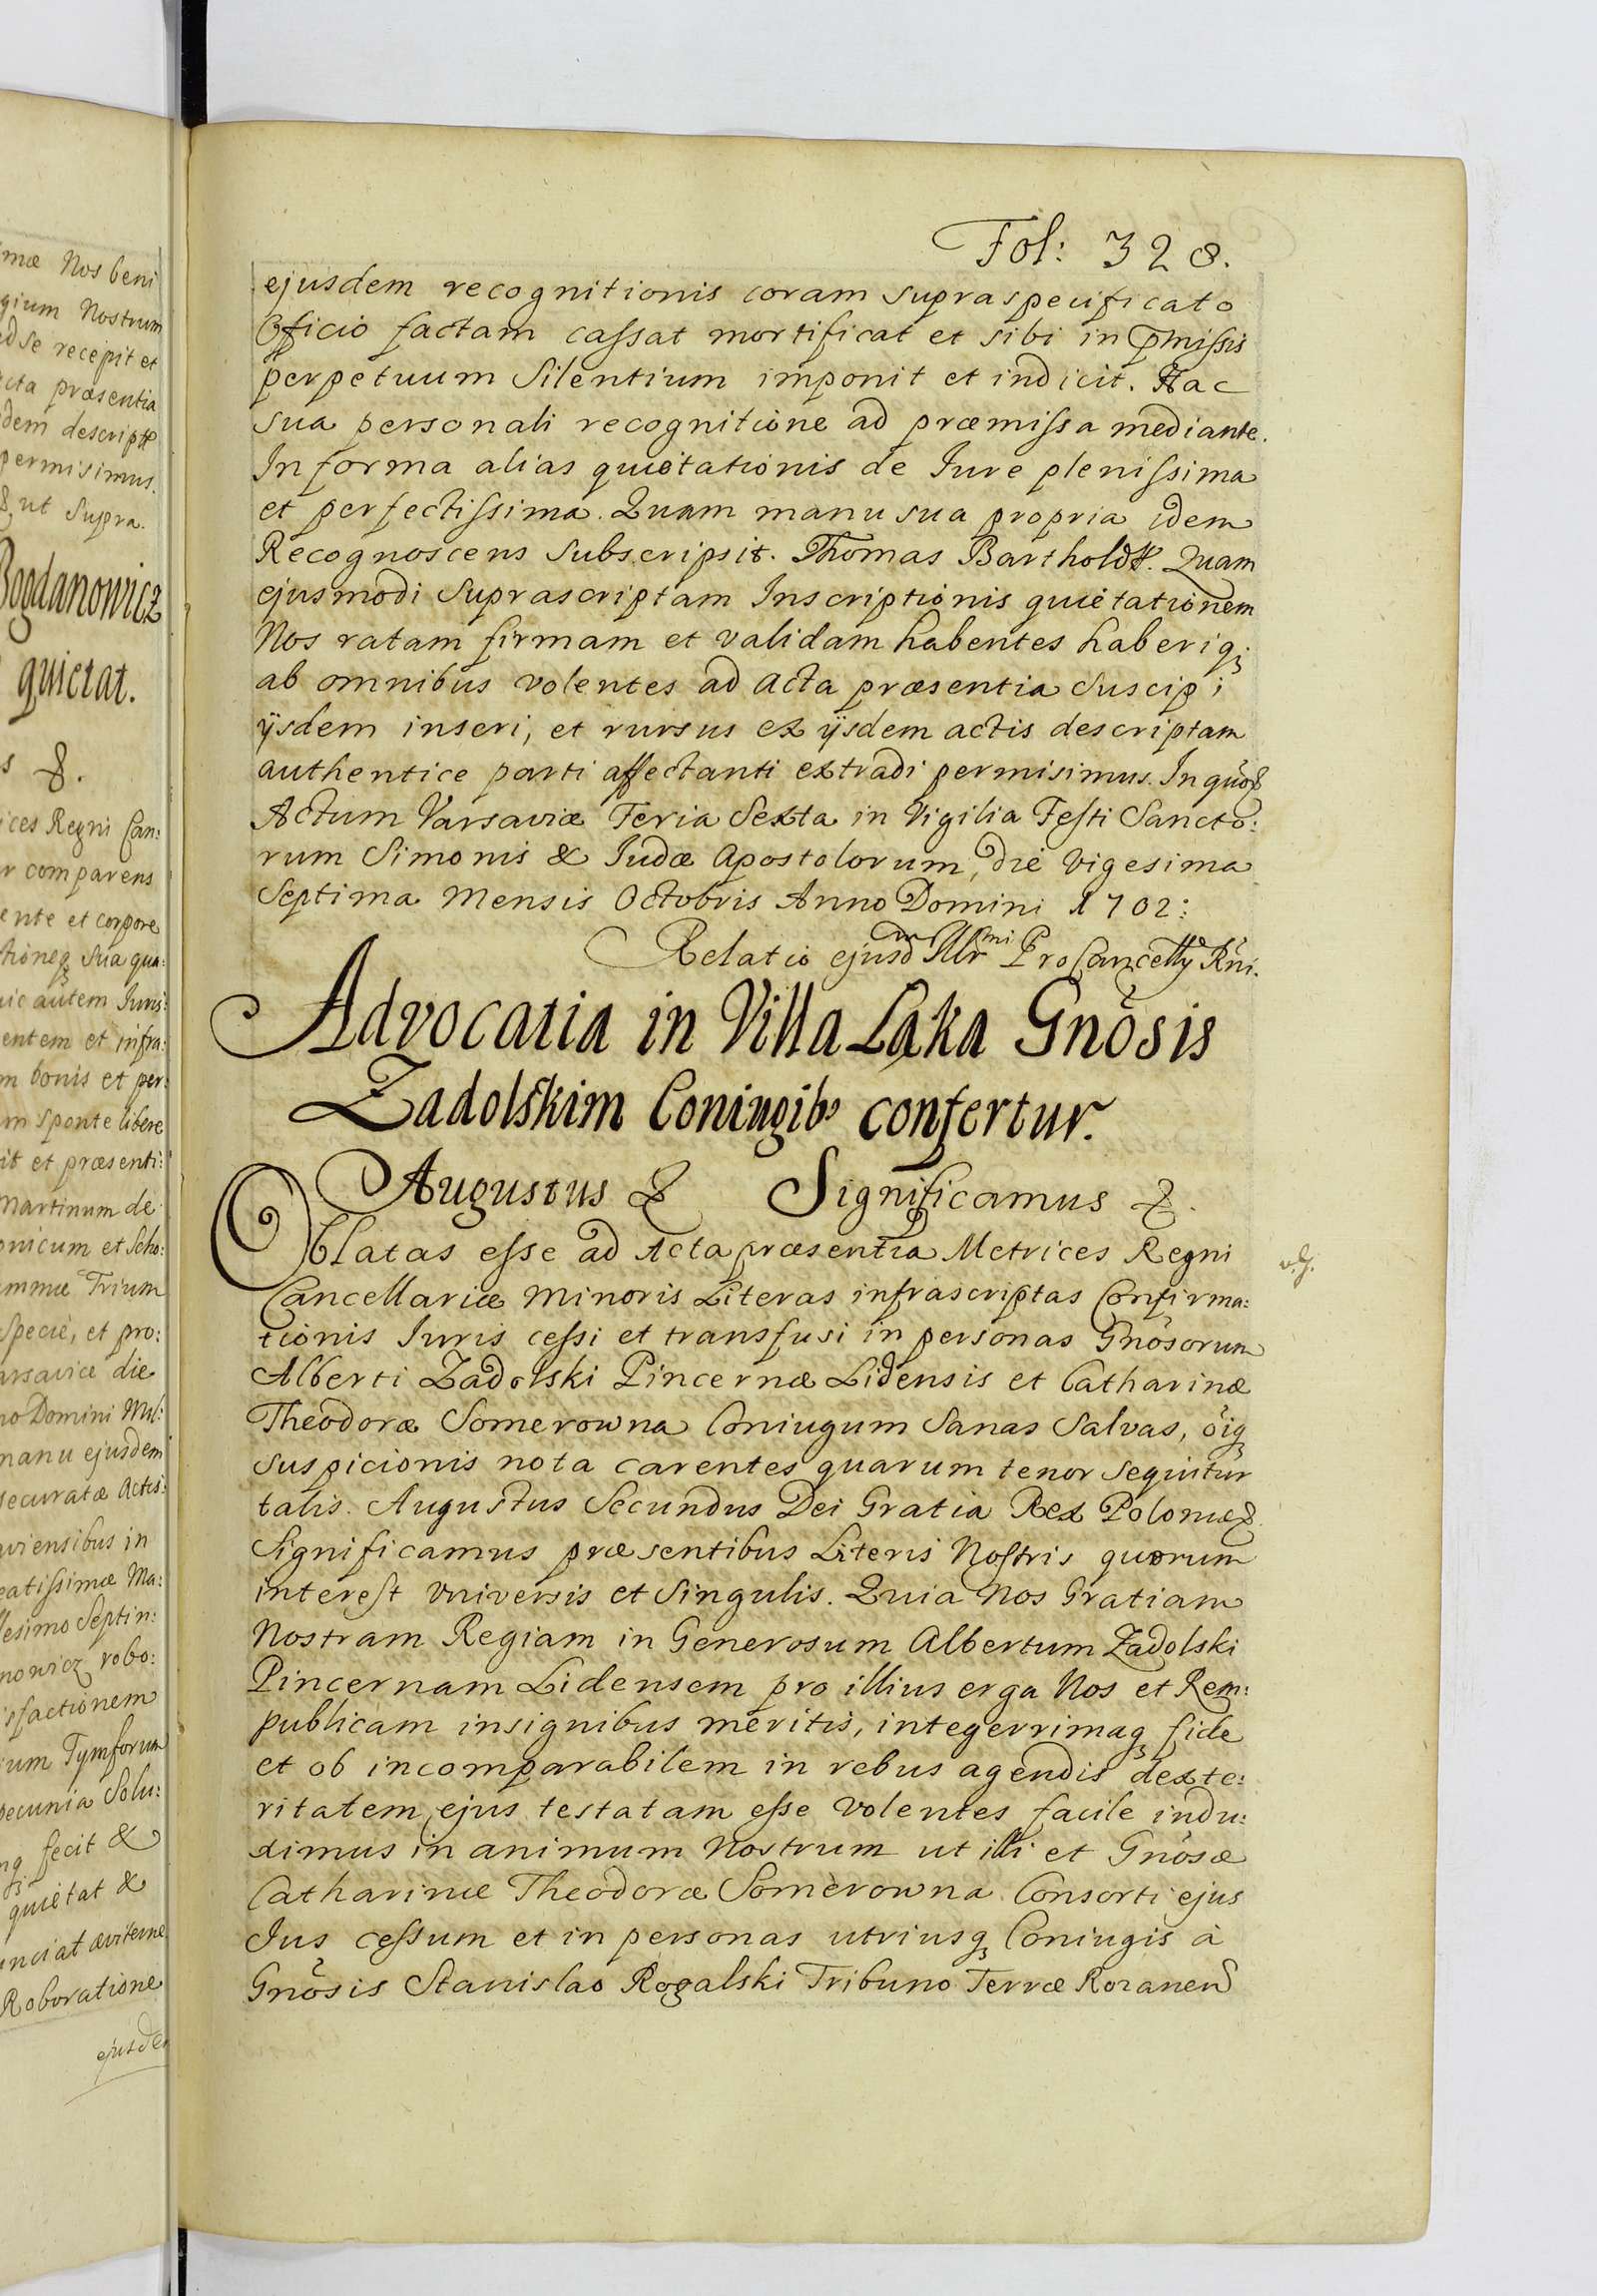 mæ Nos beni
gium Nostrum
ad se recepit et
acta præsentia
dem descriptæ
permisimus.
ut Supra.
Bogdanowicz
quietat.
ices Regni Can:
r comparens
ente et corpore
tioneq Sua qua:
uic autem Juris:
entem et infra:
m bonis et per:
m sponte libere
it et præsenti:
Martinum de
onicum et Scho:
ummæ Trium
Specie, et pro:
arsaviæ die
no Domini Mil:
manu ejusdem
securatæ Actis:
viensibus in
eatissimæ Ma:
lesimo Septin:
nowicz robo:
isfactionem
ium Tymforum
pecunia Solu:
fecit &
quietat &
unciat æviterne
Roboratione
ejusde
Fol: 328.
ejusdem recognitionis coram supraspecificato
Officio factam cassat mortificat et sibi in pmissis
perpetuum Silentium imponit et indicit. Hac
sua personali recognitione ad præmissa mediante.
In forma alias quietationis de Jure plenissima
et perfectissima. Quam manu sua propria idem
Recognoscens Subscripsit. Thomas Bartholdt. Quam
ejusmodi Suprascriptam Inscriptionis quietationem
Nos ratam firmam et validam habentes haberiq;
ab omnibus volentes ad Acta præsentia Suscipi
ijsdem inseri, et rursus ex ijsdem actis descriptam
authentice parti affectanti extradi permisimus. In quo&
Actum Varsaviæ Feria Sexta in Vigilia Festi Sancto:
rum Simonis & Judæ Apostolorum, die Vigesima
Septima Mensis Octobris Anno Domini 1702:
Relatio ejusd Illrmi ProCancelly Rni.
Advocatia in Villa Łąka Gnosis
Zadolskim Coniugibs confertur.
Augustus & Significamus &.
Oblatas esse ad Acta præsentia Metrices Regni
Cancellariæ Minoris Literas infrascriptas Confirma:
tionis Juris cessi et transfusi in personas Gnosorum
Alberti Zadolski Pincernæ Lidensis et Catharinæ
Theodoræ Somerowna Coniugum Sanas Salvas, oiq
suspicionis nota carentes quarum tenor sequitur
talis. Augustus Secundus Dei Gratia Rex Poloniæ&
Significamus præsentibus Literis Nostris quorum
interest Universis et Singulis. Quia Nos Gratiam
Nostram Regiam in Generosum Albertum Zadolski
Pincernam Lidensem pro illius erga Nos et Rem:
publicam insignibus meritis, integerrimaq fide
et ob incomparabilem in rebus agendis dexte:
ritatem ejus testatam esse volentes facile indu:
ximus in animum Nostrum ut illi et Gnosæ
Catharinæ Theodoræ Somerowna Consorti ejus
Jus cessum et in personas utriusq Coniugis à
Gnosis Stanislao Rogalski Tribuno Terræ Rozanen